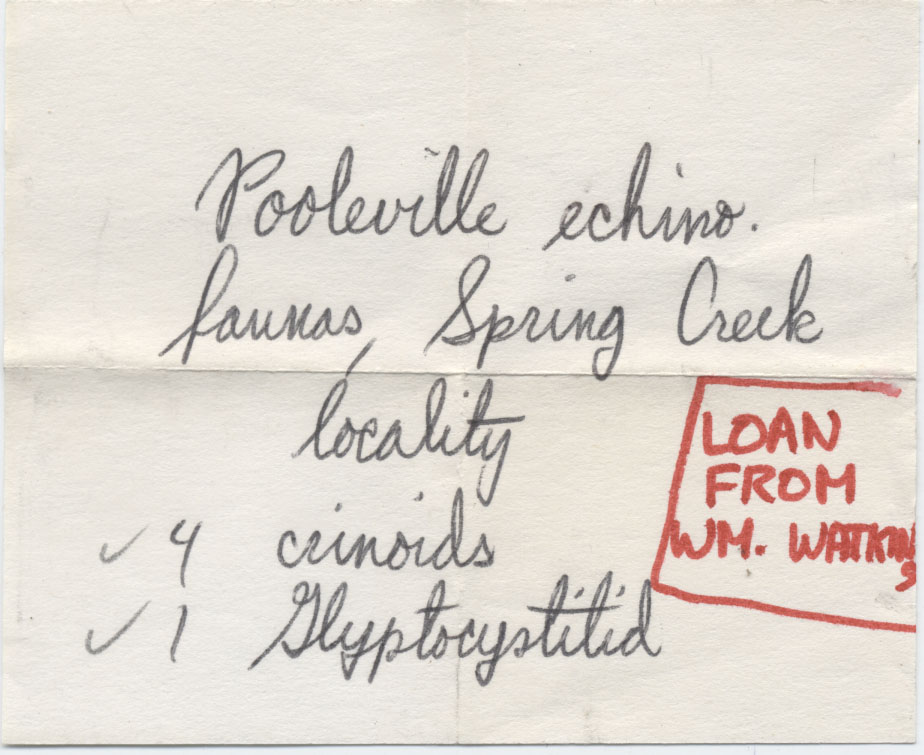 Pooleville echino.
faunas, Spring Creek
locality
✓ 4 crinoids
✓ 1 Glyptocystitid
LOAN
FROM
WM. WATKINS